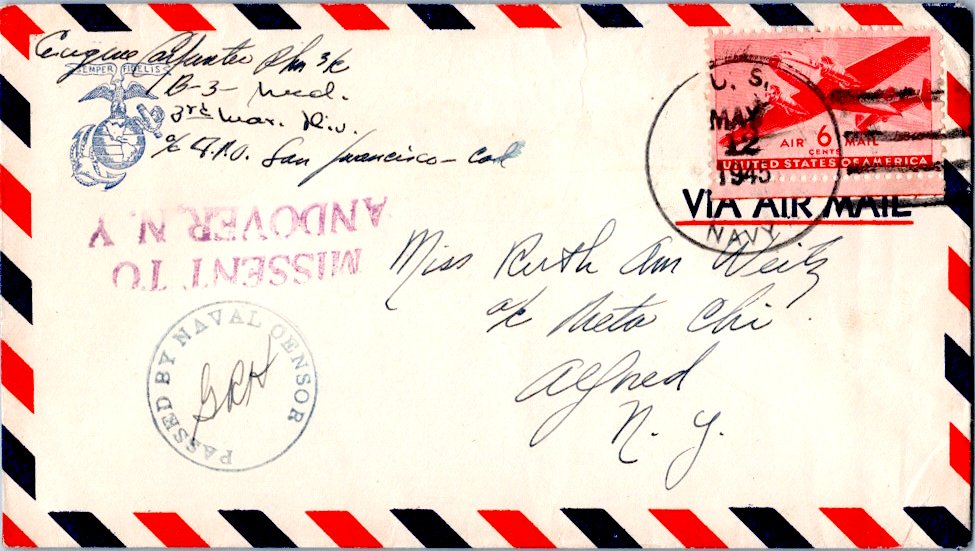 Eugene Carpenter Phm 3/c
SEMPER FIDELIS
B-3- Med.
3rd Mar. Div.
c/o F.P.O. San Francisco - Cal
U. S.
MAY
12
1945
NAVY
AIR 6 MAIL
CENTS
UNITED STATES OF AMERICA
VIA AIR MAIL
MISSENT TO
ANDOVER, N. Y
Miss Ruth Ann Weitz
c/o Theta Chi
Alfred
N. Y.
PASSED BY NAVAL CENSOR